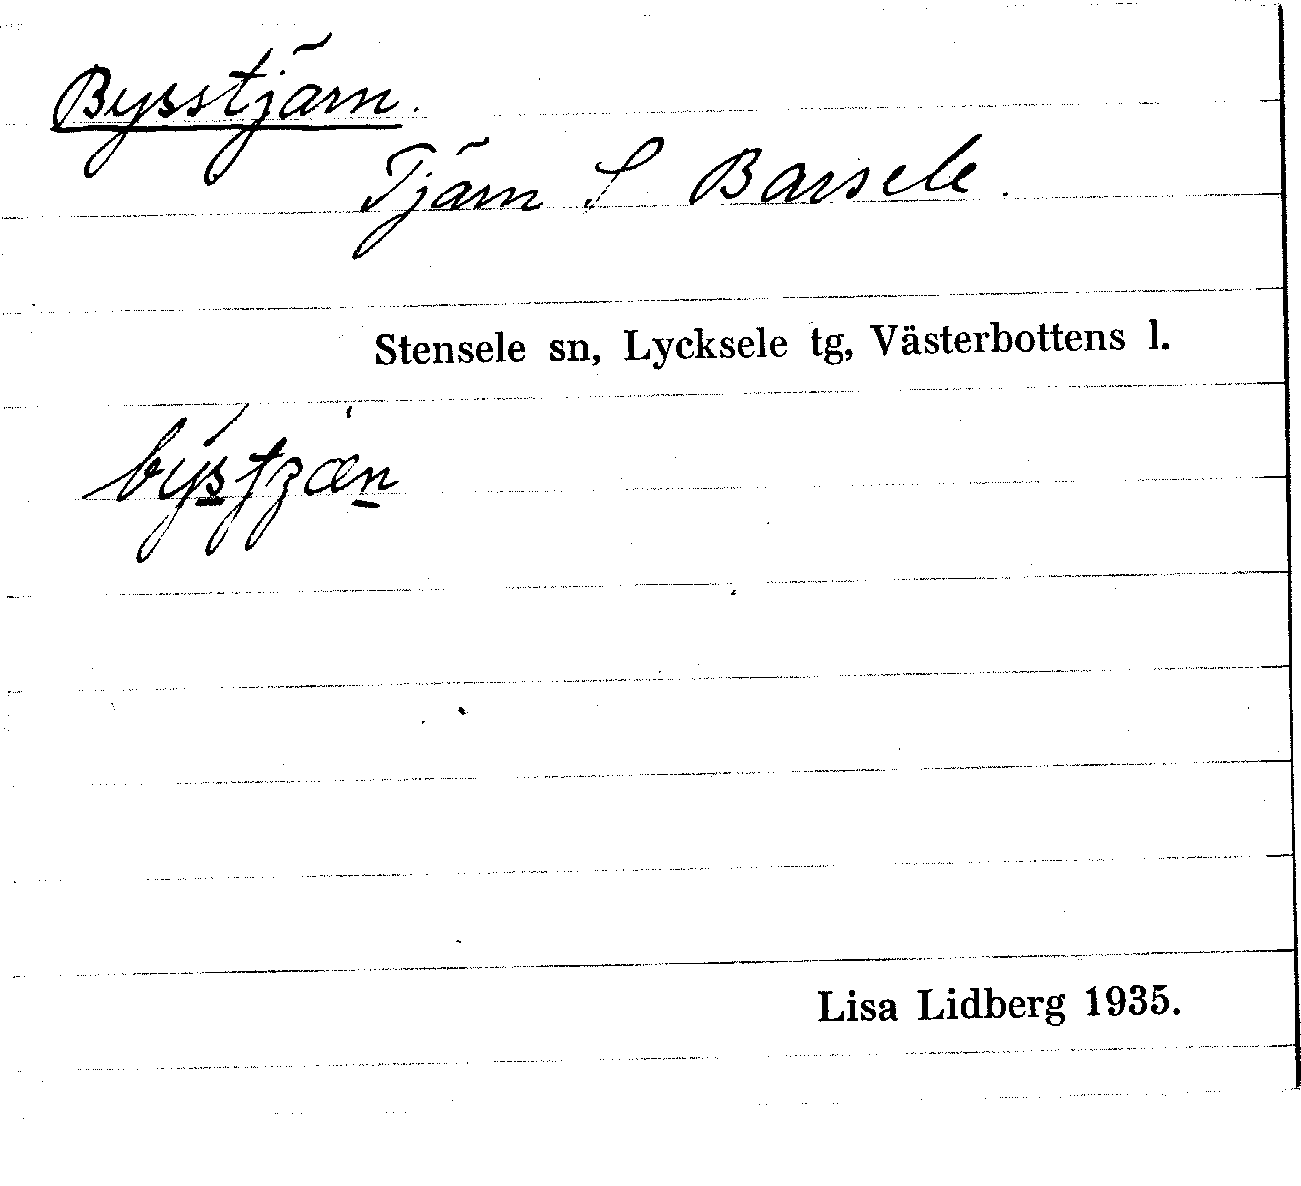 Bysstjärn.
Tjärn S Barsele.
Stensele sn, Lycksele tg, Västerbottens l.
Lisa Lidberg 1935.